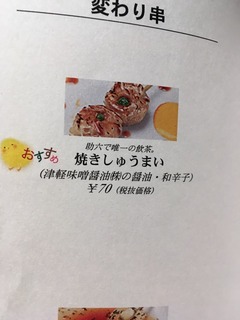 変わり串
助六で唯一の飲茶。
おすすめ
焼きしゅうまい
(津軽味噌醤油㈱の醤油・和辛子)
￥70 (税抜価格)